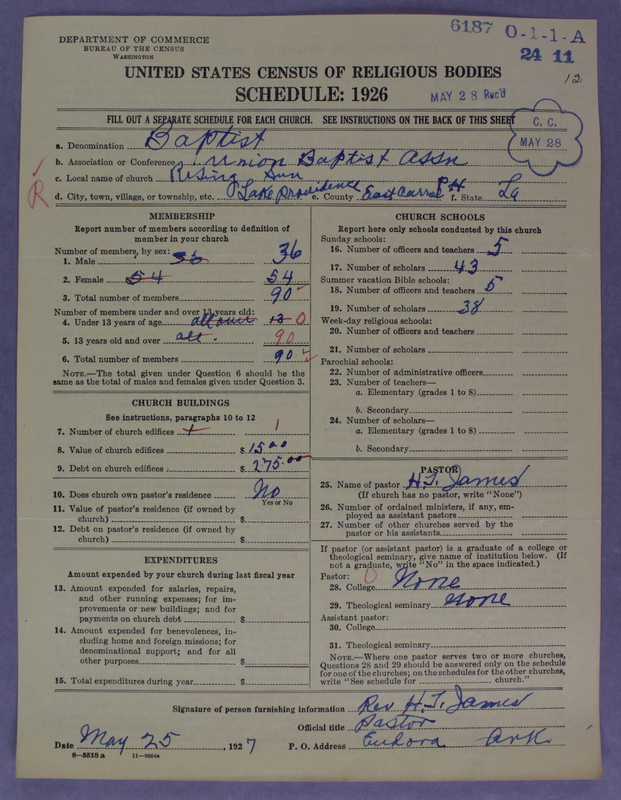 DEPARTMENT OF COMMERCE
BUREAU OF THE CENSUS
WASHINGTON
6187 0-1-1-A
24 11
12
UNITED STATES CENSUS OF RELIGIOUS BODIES
SCHEDULE: 1926
MAY 28 Rec'd
FILL OUT A SEPARATE SCHEDULE FOR EACH CHURCH. SEE INSTRUCTIONS ON THE BACK OF THIS SHEET
C. C.
MAY 28
a. Denomination Baptist
b. Association or Conference Union Baptist Assn
c. Local name of church Rising Sun
R
d. City, town, village, or township, etc. Lake Providence e. County East Carrol PH f. State La
MEMBERSHIP
Report number of members according to definition of
member in your church
Number of members, by sex:
1. Male 36 36
2. Female 54 54
3. Total number of members 90
Number of members under and over 13 years old:
4. Under 13 years of age all over 13 0
5. 13 years old and over all. 90
6. Total number of members 90
NOTE.—The total given under Question 6 should be the
same as the total of males and females given under Question 3.
CHURCH BUILDINGS
See instructions, paragraphs 10 to 12
7. Number of church edifices 1 1
8. Value of church edifices $ 1500
9. Debt on church edifices $ 275.00
10. Does church own pastor's residence No
Yes or No
11. Value of pastor's residence (if owned by
church) $
12. Debt on pastor's residence (if owned by
church) $
EXPENDITURES
Amount expended by your church during last fiscal year
13. Amount expended for salaries, repairs,
and other running expenses; for im-
provements or new buildings; and for
payments on church debt $
14. Amount expended for benevolences, in-
cluding home and foreign missions; for
denominational support; and for all
other purposes
15. Total expenditures during year $
CHURCH SCHOOLS
Report here only schools conducted by this church
Sunday schools:
16. Number of officers and teachers 5
17. Number of scholars 43
Summer vacation Bible schools:
18. Number of officers and teachers 5
19. Number of scholars 38
Week-day religious schools:
20. Number of officers and teachers
21. Number of scholars
Parochial schools:
22. Number of administrative officers
23. Number of teachers—
a. Elementary (grades 1 to 8)
b. Secondary
24. Number of scholars—
a. Elementary (grades 1 to 8)
b. Secondary
PASTOR
25. Name of pastor H.T. James
(If church has no pastor, write "None")
26. Number of ordained ministers, if any, em-
ployed as assistant pastors
27. Number of other churches served by the
pastor or his assistants
If pastor (or assistant pastor) is a graduate of a college or
theological seminary, give name of institution below. (If
not a graduate, write "No" in the space indicated.)
Pastor:
28. College 0 None
29. Theological seminary none
Assistant pastor:
30. College
31. Theological seminary
NOTE.—Where one pastor serves two or more churches,
Questions 28 and 29 should be answered only on the schedule
for one of the churches; on the schedules for the other churches,
write "See schedule for church."
Signature of person furnishing information Rev H.T. James
Official title Pastor
Date May 25, 1927 P. O. Address Eudora Ark.
8-5518 a